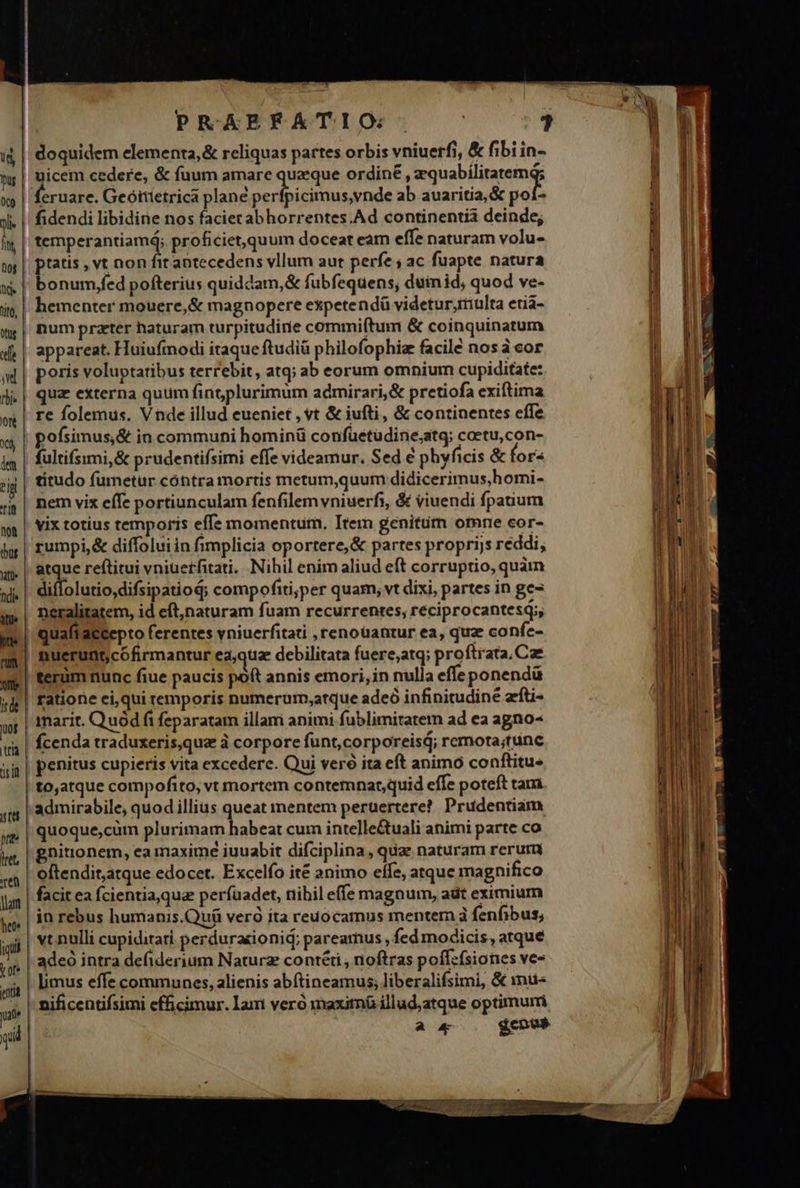 PRAEFATIO. 7
doquidem elementa, & reliquas partes orbis vniuersi, & sibi in-
uicem cedere, & suum amare quæque ordinē, æquabilitatemq́;
seruare. Geōmetricā plane perspicimus, vnde ab auaritia, & pos-
sidendi libidine nos faciet abhorrentes. Ad continentiā deinde,
temperantiamq́; proficiet, quum doceat eam esse naturam volu-
ptatis, vt non sit antecedens vllum aut perse, ac suapte natura
bonum, sed posterius quiddam, & subsequens, dum id, quod ve-
hementer mouere, & magnopere expetendū videtur, multa etiā-
num præter naturam turpitudine commistum & coinquinatum
appareat. Huiusmodi itaque studiū philosophiæ facile nos à cor
poris voluptatibus terrebit, atq; ab eorum omnium cupiditate:
quæ externa quum sint, plurimum admirari, & pretiosa existima
re solemus. Vnde illud eueniet, vt & iusti, & continentes esse
possimus, & in communi hominū consuetudine, atq; cœtu, con-
sultissimi, & prudentissimi esse videamur. Sed è physicis & for-
titudo sumetur cōntra mortis metum, quum didicerimus, homi-
nem vix esse portiunculam sensilem vniuersi, & viuendi spatium
vix totius temporis esse momentum. Item genitum omne cor-
rumpi, & dissolui in simplicia oportere, & partes proprijs reddi,
atque restitui vniuersitati. Nihil enim aliud est corruptio, quàm
dissolutio, dissipatioq́; compositi, per quam, vt dixi, partes in ge-
neralitatem, id est, naturam suam recurrentes, reciprocantesq;,
quasi accepto ferentes vniuersitati, renouantur ea, quæ conse-
nuerunt, cōfirmantur ea, quæ debilitata fuere, atq; prostrata. Cæ
terùm nunc siue paucis pòst annis emori, in nulla esse ponendū
ratione ei, qui temporis numerum, atque adeò infinitudinē æsti-
marit. Quòd si separatam illam animi sublimitatem ad ea agno-
scenda traduxeris, quæ à corpore sunt, corporeisq́; remota, tunc
penitus cupieris vita excedere. Qui verò ita est animo constitu-
to, atque composito, vt mortem contemnat, quid esse potest tam
admirabile, quod illius queat mentem peruertere? Prudentiam
quoque, cùm plurimam habeat cum intellectuali animi parte co
gnitionem, ea maximè iuuabit disciplina, quæ naturam rerum
ostendit, atque edocet. Excelso itē animo esse, atque magnifico
facit ea scientia, quæ persuadet, nihil esse magnum, aut eximium
in rebus humanis. Quū verò ita reuocamus mentem à sensibus,
vt nulli cupiditati perduraxioniq́; pareamus, sed modicis, atque
adeò intra desiderium Naturæ contēti, nostras possessiones ve-
limus esse communes, alienis abstineamus, liberalissimi, & mu-
nificentissimi efficimur. Iam verò maximū illud, atque optimum
a 4 genus